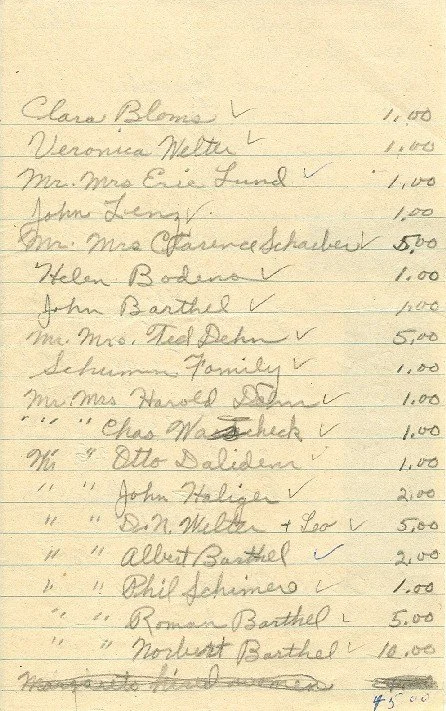 Clara Bloms ✓ 1.00
Veronica Welter ✓ 1.00
Mr. Mrs Eric Lund ✓ 1.00
John Lenz ✓ 1.00
Mr. Mrs Clarence Schaeber ✓ 5.00
Helen Bodens ✓ 1.00
John Barthel ✓ 1.00
Mr. Mrs. Ted Dehn ✓ 5.00
Schumm Family ✓ 1.00
Mr Mrs Harold Dehn ✓ 1.00
" " " Chas Wascheck ✓ 1.00
Mr " Otto Daliden ✓ 1.00
" " John Haliger ✓ 2.00
" " D.N. Welter + Leo ✓ 5.00
" " Albert Barthel ✓ 2.00
" " Phil Schimers ✓ 1.00
" " Roman Barthel ✓ 5.00
" " Norbert Barthel ✓ 10.00
45 00